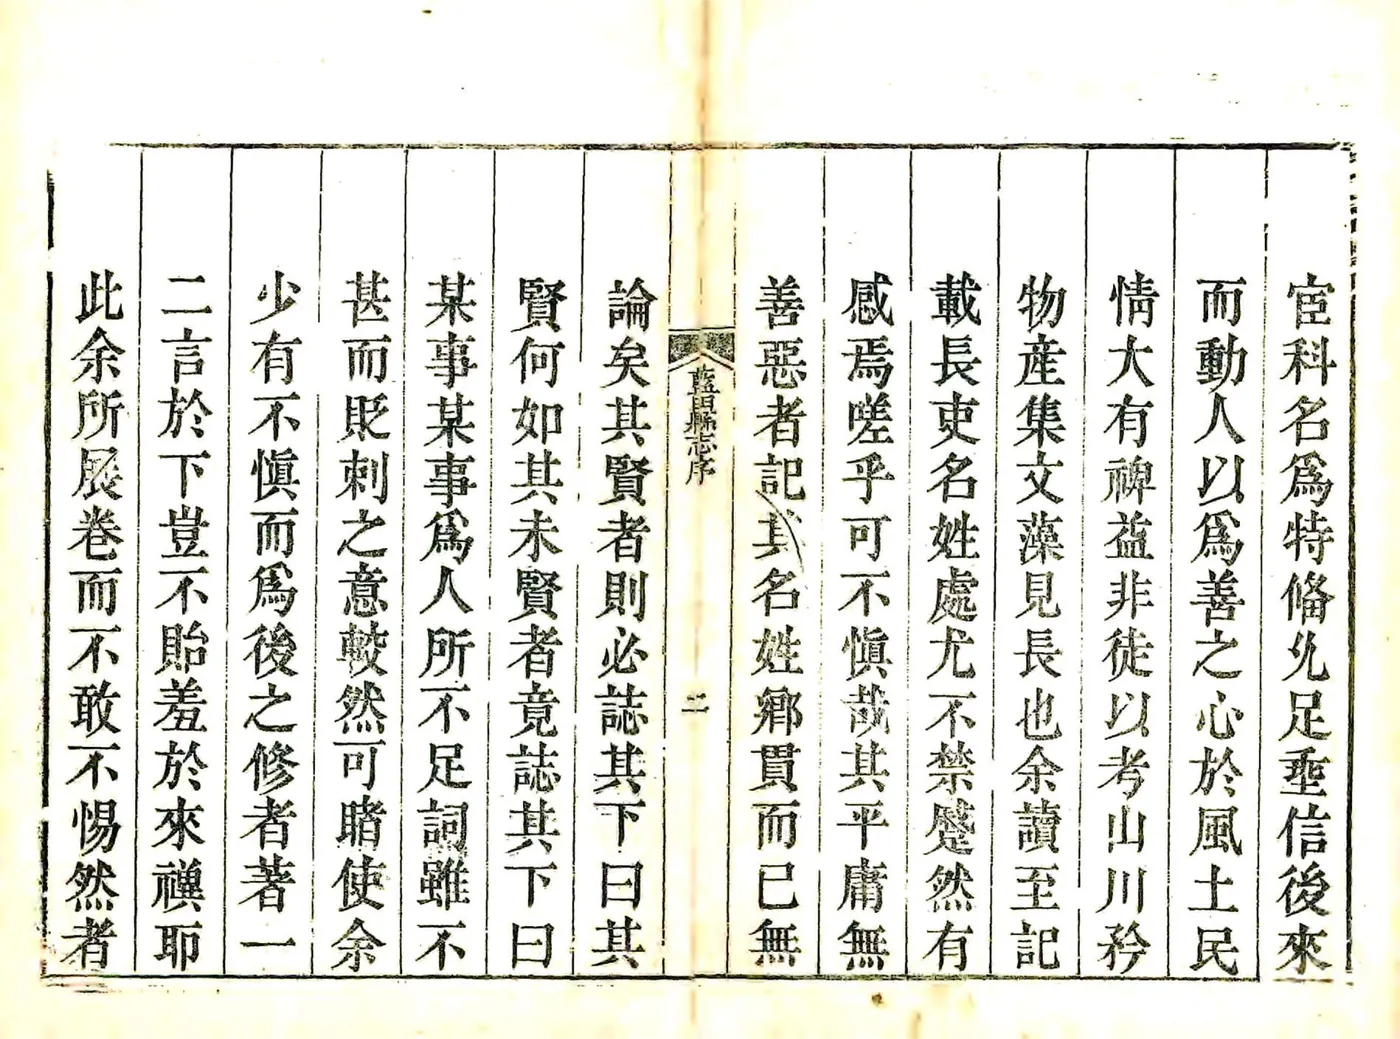 宦科名爲特備允足垂信後來
而動人以爲善之心於風土民
情大有裨益非徒以考山川矜
物産集文藻見長也余讀至記
載長吏名姓處尤不禁蹙然有
感焉嗟乎可不慎哉其平庸無
善惡者記其名姓鄉貫而已無
藍田縣志序
二
論矣其賢者則必誌其下曰其
賢何如其未賢者竟誌其下曰
某事某事爲人所不足詞雖不
甚而貶刺之意較然可睹使余
少有不愼而爲後之修者著一
二言於下豈不貽羞於來禩耶
此余所展巻而不敢不惕然者